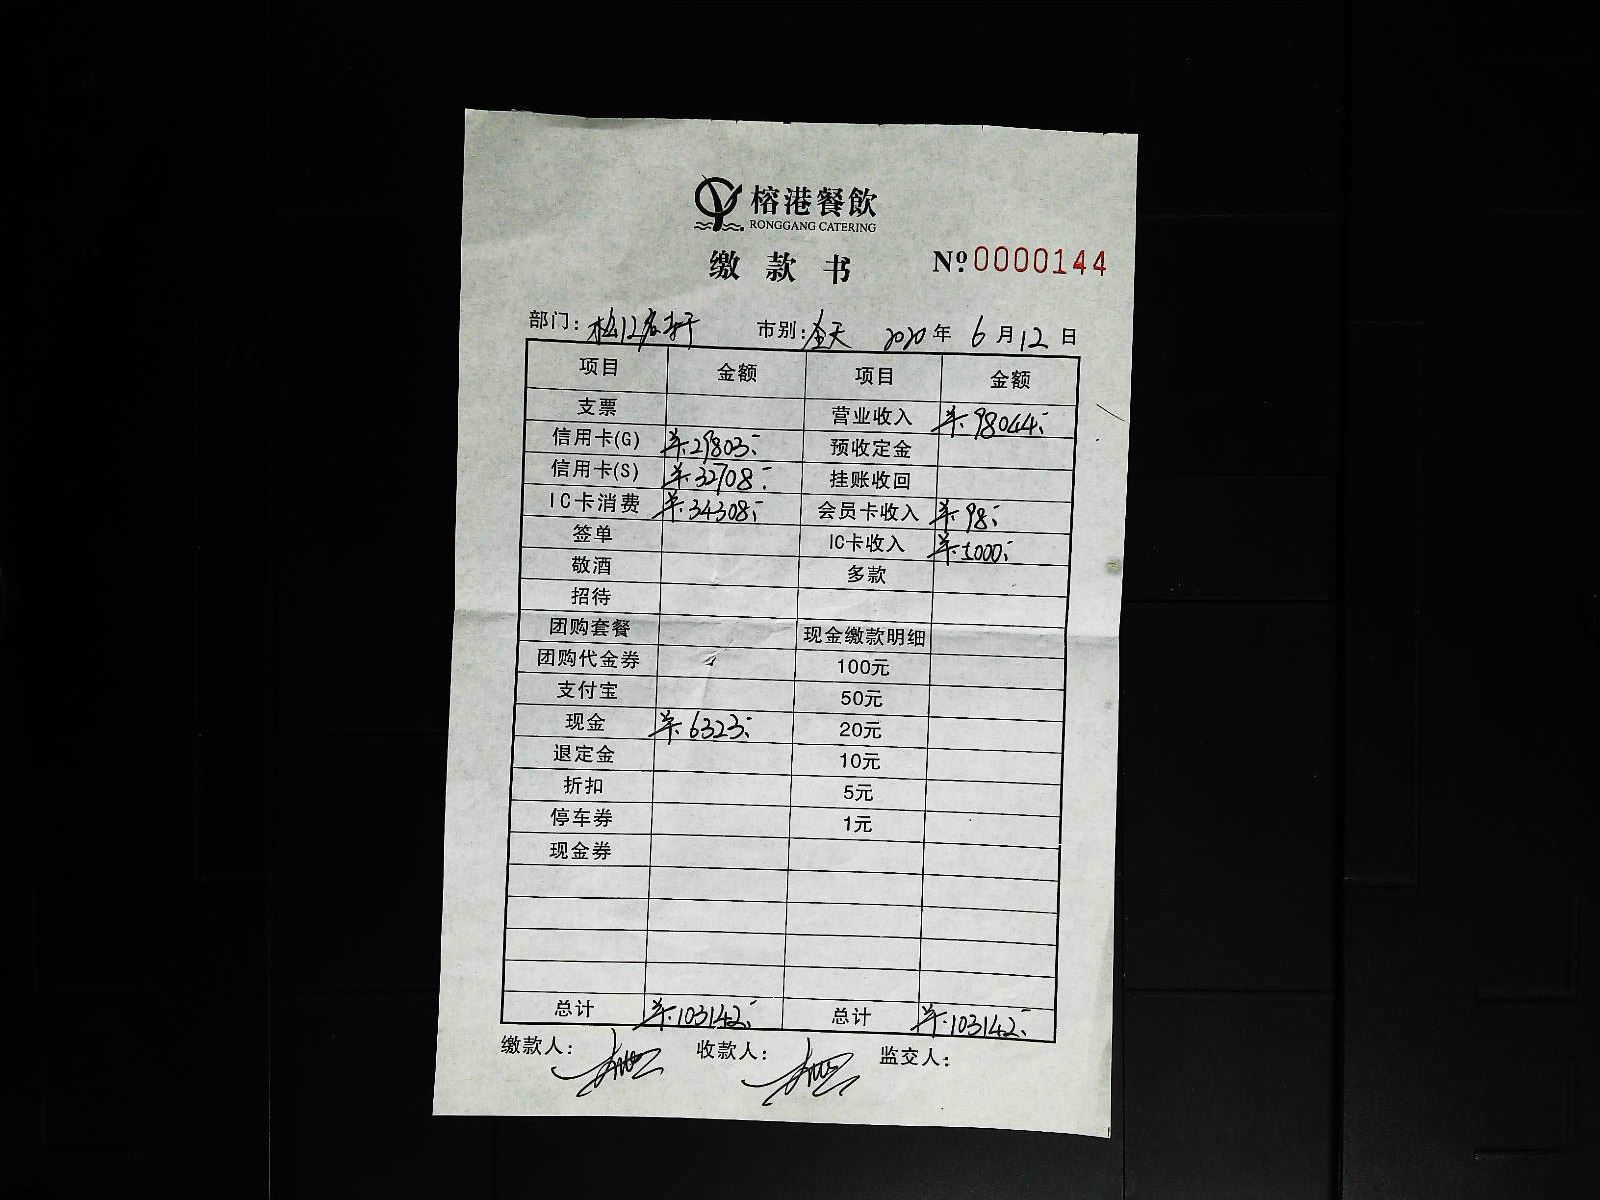 榕港餐飲
RONGGANG CATERING
缴款书 №0000144
部门: 松江名轩 市别: 全天 2020年6月12日
项目 金额 项目 金额
支票 营业收入 ¥.98044.-
信用卡(G) ¥.29803.- 预收定金
信用卡(S) ¥.32708.- 挂账收回
IC卡消费 ¥.34308.- 会员卡收入 ¥.98.-
签单 IC卡收入 ¥.5000.-
敬酒 多款
招待
团购套餐 现金缴款明细
团购代金券 100元
支付宝 50元
现金 ¥.6323.- 20元
退定金 10元
折扣 5元
停车券 1元
现金券
总计 ¥.103142.- 总计 ¥.103142.-
缴款人: 收款人: 监交人: